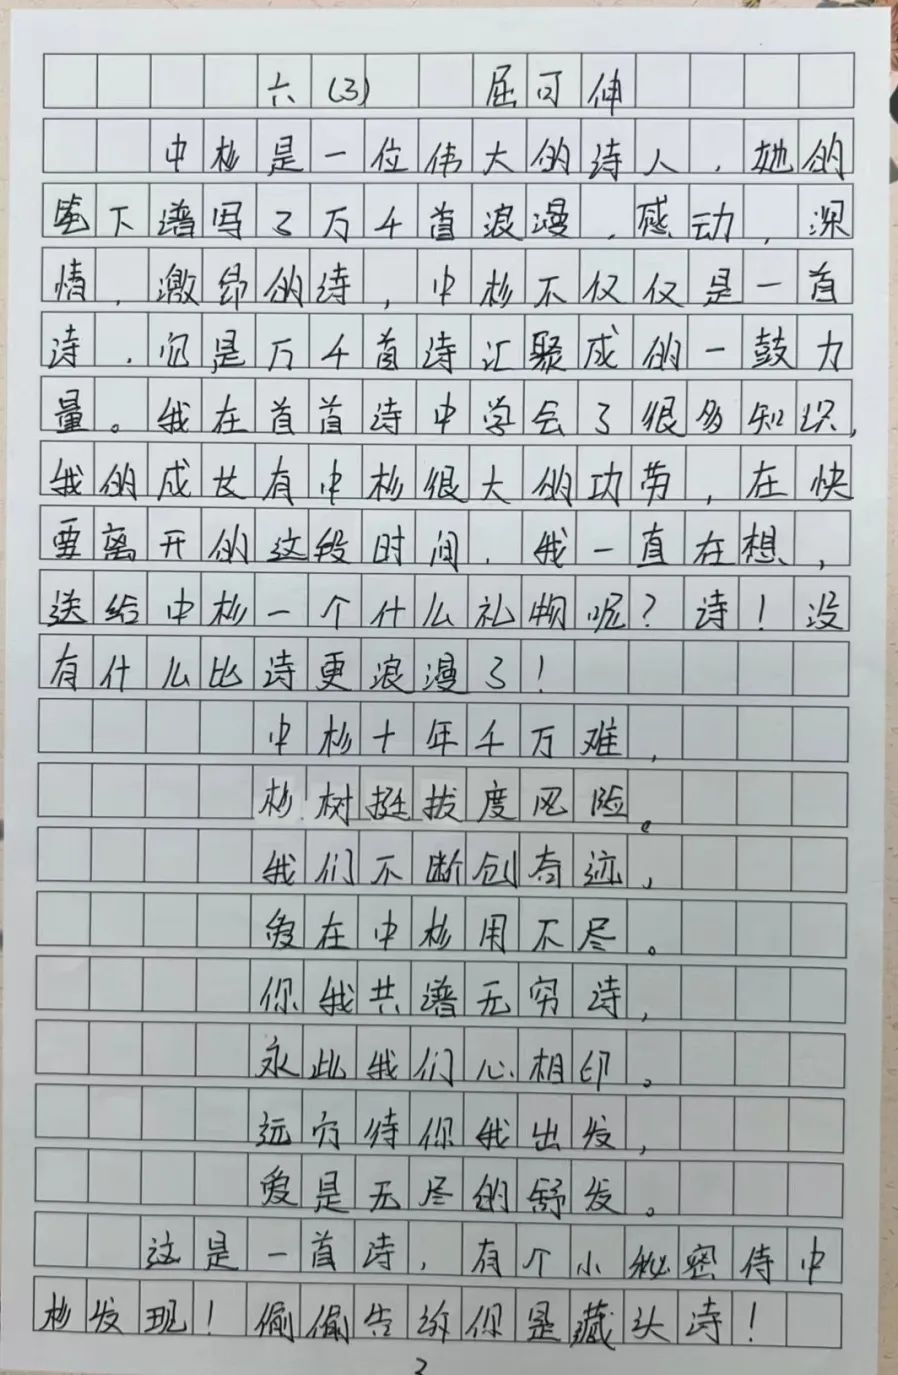 六(3) 屈可伸
中杉是一位伟大的诗人，她的
笔下谱写了万千首浪漫，感动，深
情，激昂的诗，中杉不仅仅是一首
诗，它是万千首诗汇聚成的一鼓力
量。我在首首诗中学会了很多知识，
我的成长有中杉很大的功劳，在快
要离开的这段时间，我一直在想，
送给中杉一个什么礼物呢？诗！没
有什么比诗更浪漫了！
中杉十年千万难，
杉树挺拔度风险。
我们不断创奇迹，
爱在中杉用不尽。
你我共谱无穷诗，
永此我们心相印。
远方待你我出发，
爱是无尽的舒发。
这是一首诗，有个小秘密待中
杉发现！偷偷告诉你是藏头诗！
2